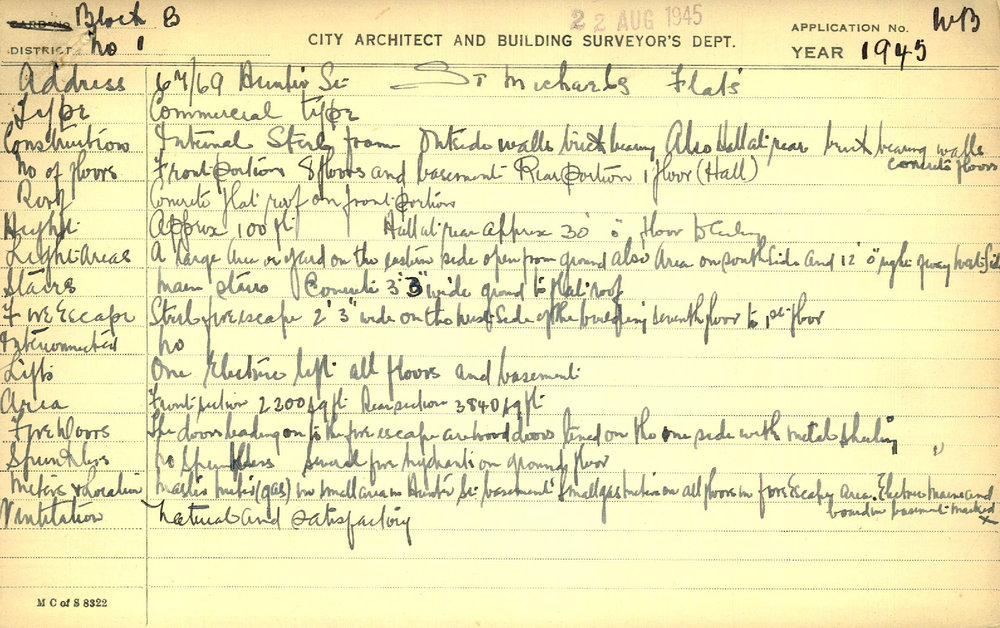 Block B
CARDING 22 AUG 1945 APPLICATION No. WB
DISTRICT No 1 CITY ARCHITECT AND BUILDING SURVEYOR'S DEPT. YEAR 1945
Address 67/69 Hunter St St Michaels Flats
Type Commercial type
Construction Internal Steel frame Outside walls brick bearing Also Hall at rear brick bearing walls
concrete floors
No of floors Front portion 8 floors and basement Rear portion 1 floor (Hall)
Roof Concrete flat roof on front portion
Height Approx 100 ft Hall at rear approx 30' 0" floor to ceiling
Light Areas A large area or yard on the eastern side open from ground also area on south side and 12' 0" right of way west side
Stairs Main stairs Concrete 3' 3" wide ground to flat roof
Fire Escape Steel fire escape 2' 3" wide on the west side of the building seventh floor to 1st floor
Interconnected No
Lifts One Electric lift all floors and basement
Area Front section 2200 sq ft Rear section 3840 sq ft
Fire Doors The doors leading on to the fire escape are wood doors lined on the one side with metal sheeting
Sprinklers No Sprinklers Several fire hydrants on ground floor
Meters & Location Master meter (gas) in small area in Hunter St basement small gas meters on all floors in fire Escape area. Electric mains and
board in basement marked X
Ventilation Natural and satisfactory
M C of S 8322